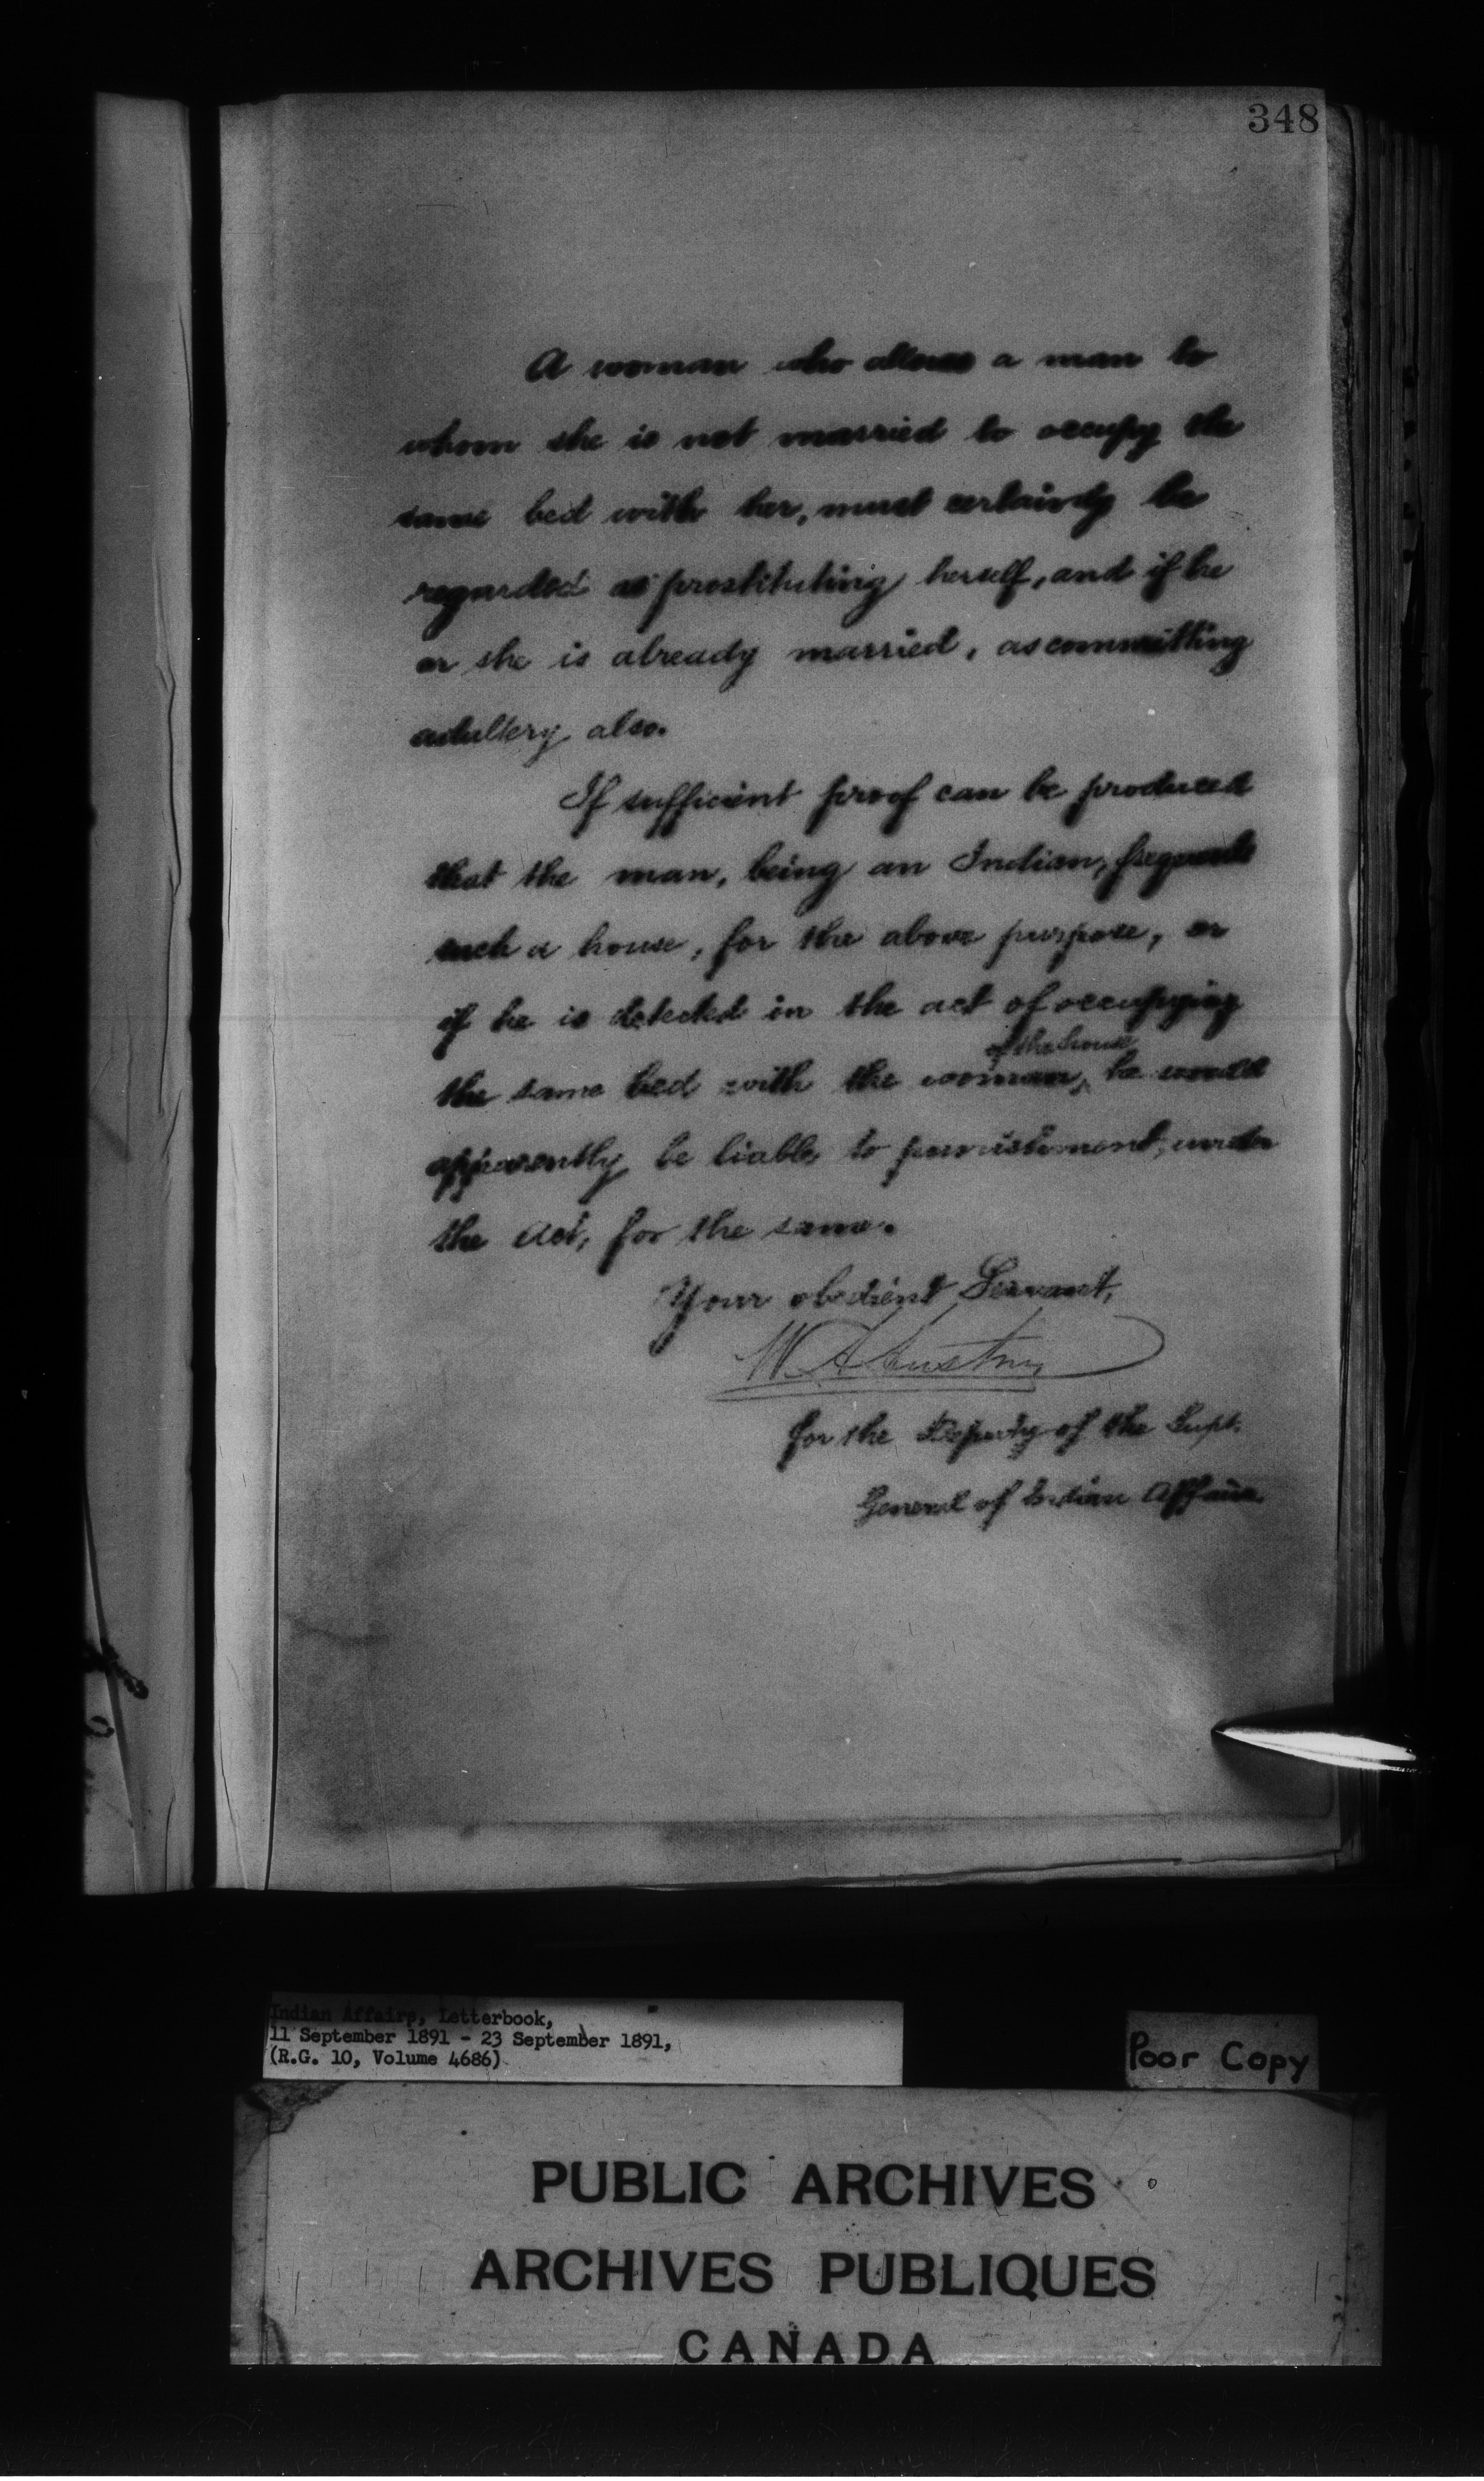 348
A woman who allows a man to
whom she is not married to occupy the
same bed with her, must certainly be
regarded as prostituting herself, and if he
or she is already married, as committing
adultery also.
If sufficient proof can be produced
that the man, being an Indian, frequents
such a house, for the above purpose, or
if he is detected in the act of occupying
of the house
the same bed with the woman, he would
apparently be liable to punishment, under
the Act, for the same.
Your obedient Servant,
W. A. Austin
for the Deputy of the Supt.
General of Indian Affairs.
Indian Affairs, Letterbook,
11 September 1891 - 23 September 1891,
(R.G. 10, Volume 4686)
Poor Copy
PUBLIC ARCHIVES
ARCHIVES PUBLIQUES
CANADA